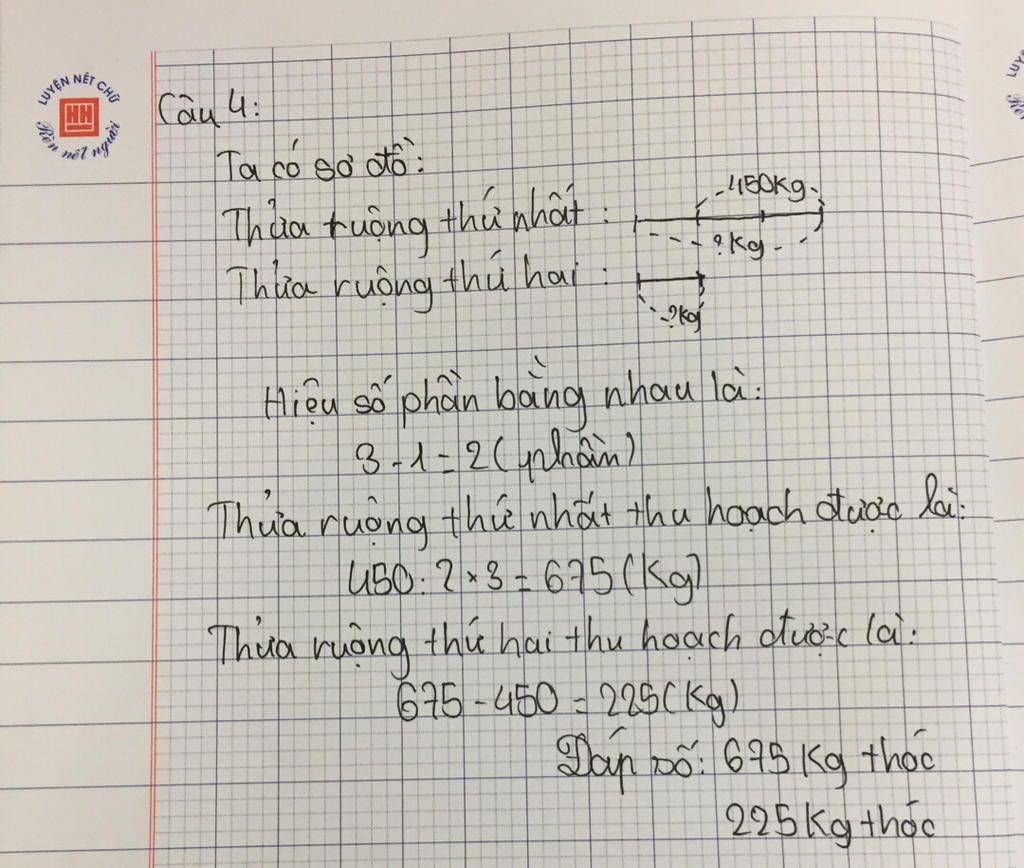 LUYỆN NÉT CHỮ
HH
Rèn nết người
Câu 4:
Ta có sơ đồ:
Thửa ruộng thứ nhất :
450Kg
? Kg
Thửa ruộng thứ hai :
?kg
Hiệu số phần bằng nhau là:
3 - 1 = 2 (phần)
Thửa ruộng thứ nhất thu hoạch được là:
450 : 2 × 3 = 675 (Kg)
Thửa ruộng thứ hai thu hoạch được là:
675 - 450 = 225 (Kg)
Đáp số: 675 Kg thóc
225 Kg thóc